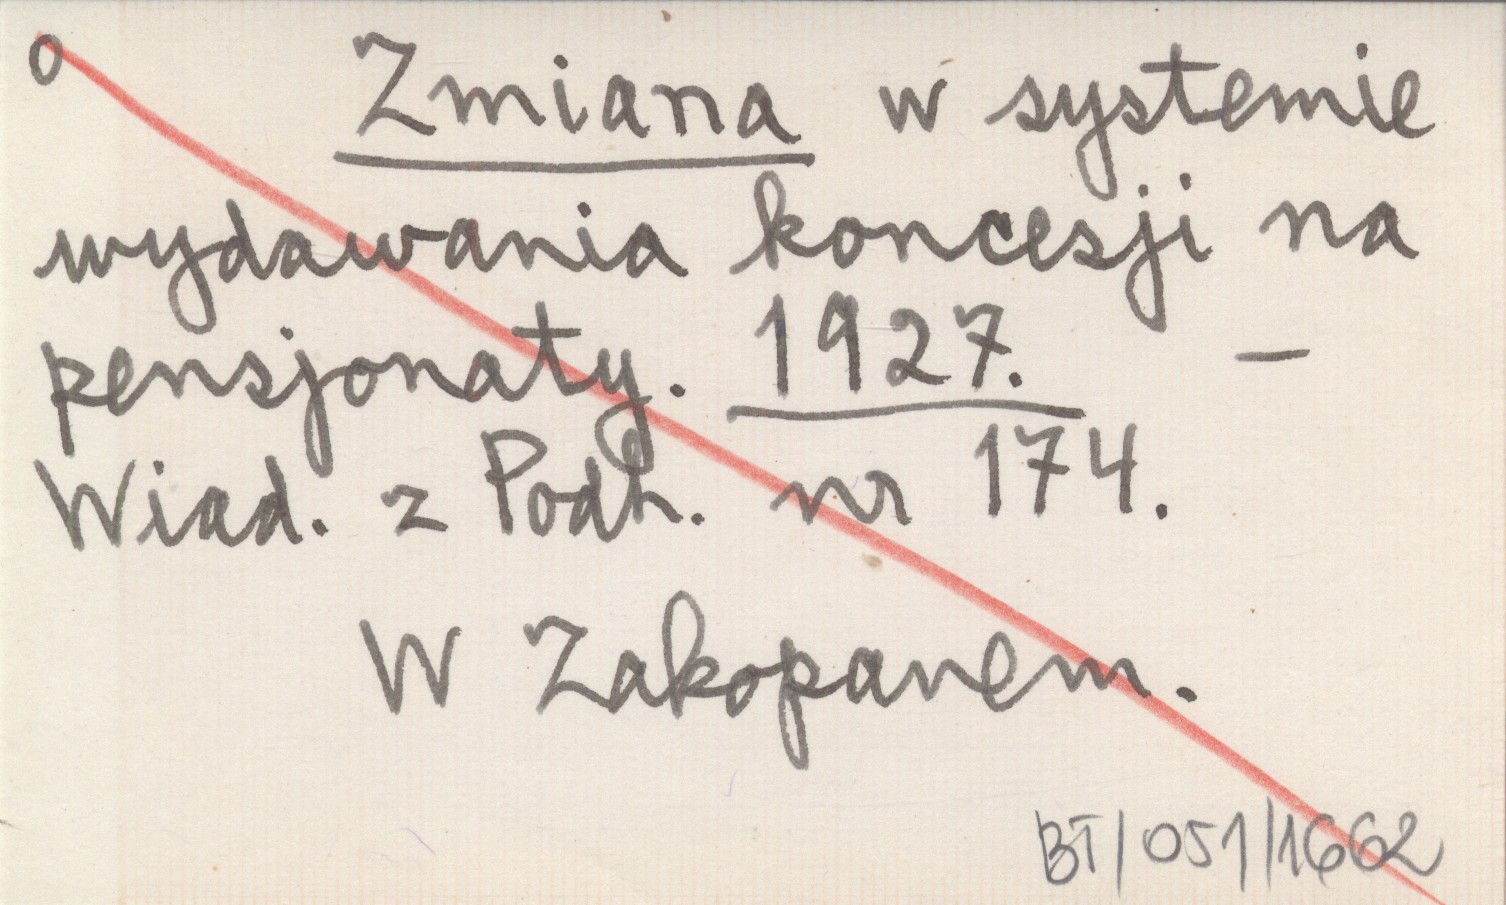 o
Zmiana w systemie
wydawania koncesji na
pensjonaty. 1927. —
Wiad. z Podh. nr 174.
W Zakopanem.
BT/051/1662